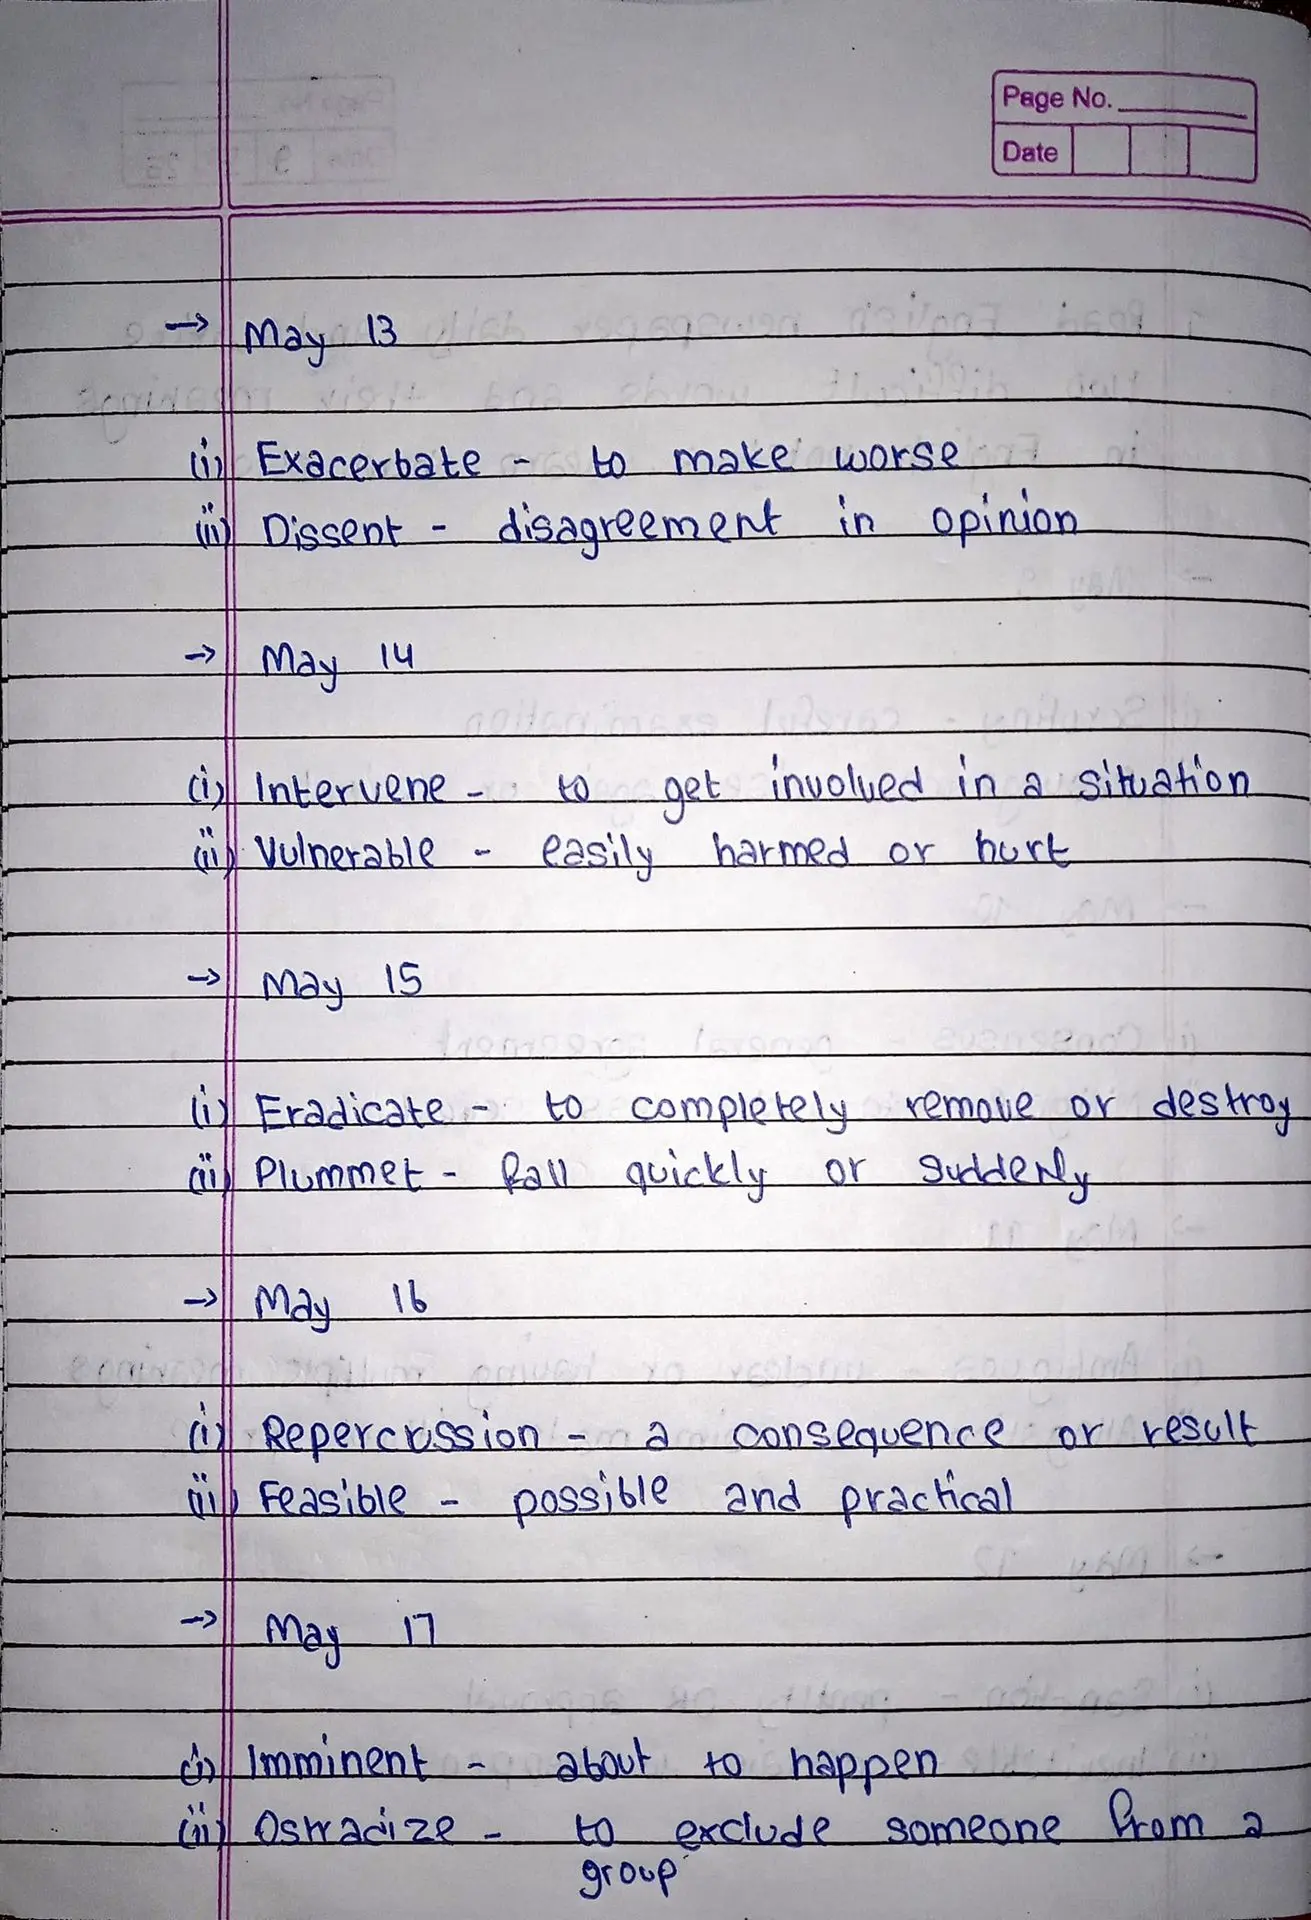 Page No.
Date
→ May 13
(i) Exacerbate - to make worse
(ii) Dissent - disagreement in opinion
→ May 14
(i) Intervene - to get involved in a situation
(ii) Vulnerable - easily harmed or hurt
→ May 15
(i) Eradicate - to completely remove or destroy
(ii) Plummet - fall quickly or suddenly
→ May 16
(i) Repercussion - a consequence or result
(ii) Feasible - possible and practical
→ May 17
(i) Imminent - about to happen
(ii) Ostracize - to exclude someone from a
group